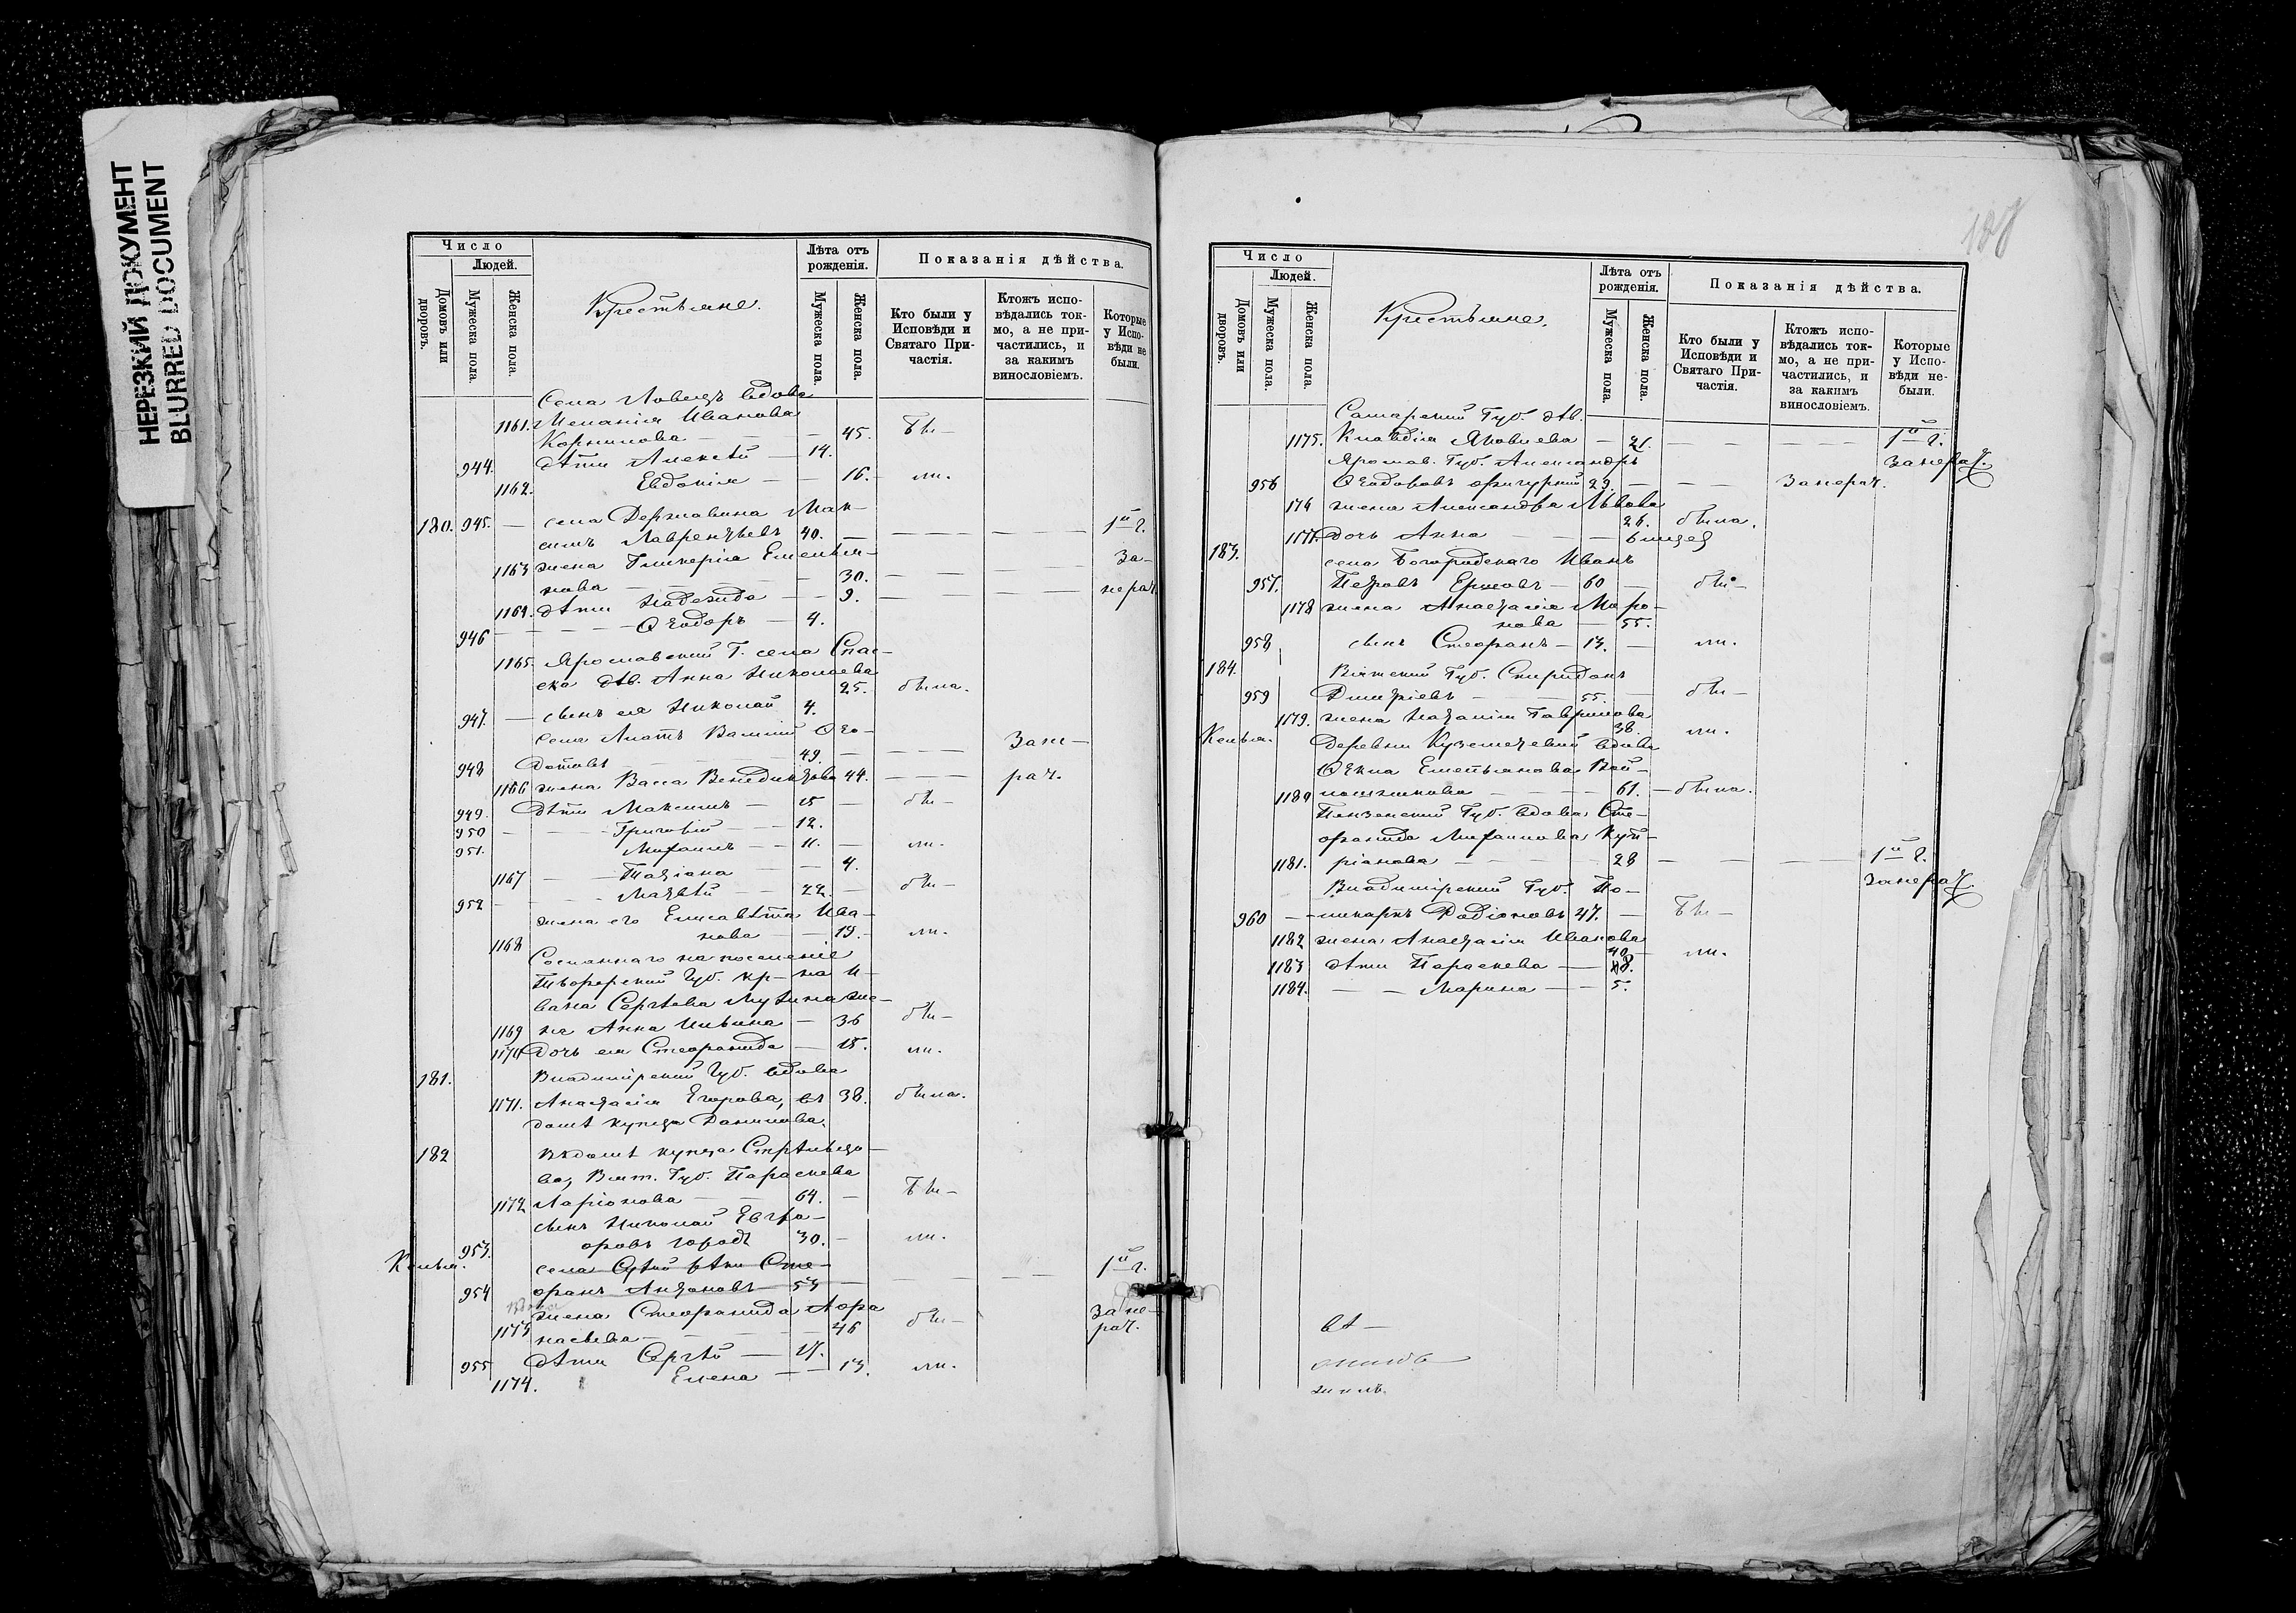 НЕРЕЗКИЙ ДОКУМЕНТ
BLURRED DOCUMENT
Число
Людей.
Домовъ или дворовъ.
Мужеска пола.
Женска пола.
Крестьяне.
Лѣта отъ рожденія.
Мужеска пола.
Женска пола.
Показанія дѣйства.
Кто были у Исповѣди и Святаго Причастія.
Ктожъ исповѣдались токмо, а не причастились, и за какимъ винословіемъ.
Которые у Исповѣди не были.
Села Ловецъ вдова
1161. Меланія Иванова
Корнилова — 45. бы—
944. дѣти Алексѣй — 14.
1162. Евдокія — — 16. ли.
180. 945. — села Державина Мак-
симъ Лаврентьевъ 40. — — — — 1й г.
1163 жена Гликерія Емелья- за-
нова — 30. — — —
1164. дѣти Надежда — — 9. — — нерач.
946 — — — Ѳеодоръ — 4.
1165. Ярославской Г. села Спас-
ска дѣв. Анна Николаева
25. была.
947. — сынъ ея Николай 4.
села Василій Ѳео-
948 дотовъ 49. — — — Зане-
1166 жена Васса Венедиктова 44. — — рач.
949. Дѣти Максимъ — 15 — бы—
950 — — Григорій — — 12.
951. Михаилъ — — 11. — ли.
1167 — — Татіана — 4.
952 — — Матвѣй — 22. — бы—
жена его Елисавета Ива-
1168 нова — — 19. — ли.
Сосланнаго на поселеніе
Губ. кр—на И-
вана Сергѣева же-
1169 на Анна Ильина — 36 бы—
1170 Дочь ея Стефанида — 15. ли.
181. Владимірской Губ. вдова
1171. Анастасія Егорова, въ 38. была.
домѣ купца Данилова.
182 Въ домѣ купца Стрѣльцо-
ва, Вят. Губ. Параскева
1172 Ларіонова — — 64. — бы—
сынъ Николай Евгра-
953. фовъ 30. — ли.
Келья. села Сте-
954 фанъ Антоновъ — 53 — — — 1й г.
вдова
жена Стефанида Афа
1173 насьева — — 46 бы— зане-
рач.
955 дѣти Сергѣй — 17.
1174. Елена — — 13. ли.
Число
Людей.
Домовъ или дворовъ.
Мужеска пола.
Женска пола.
Крестьяне.
Лѣта отъ рожденія.
Мужеска пола.
Женска пола.
Показанія дѣйства.
Кто были у Исповѣди и Святаго Причастія.
Ктожъ исповѣдались токмо, а не причастились, и за какимъ винословіемъ.
Которые у Исповѣди небыли.
Самарской Губ. дѣв.
1175. Клавдія Яковлева — 21. — — — 1й г.
Ярослав. Губ. Александръ занерач.
956 Ѳеодоровъ 29. — — — Занерач.
176 жена Александра Львова
26. была.
1177. Дочь Анна — — 6 мѣсяц
183. села Богородскаго Иванъ
957. Петровъ Ершовъ — 60 — бы—
1178 жена Анастасія Миро-
нова — 55.
958 сынъ Стефанъ — 13. — ли.
184. Вятской Губ. Спиридонъ
959 Дмитріевъ — — 55. — бы—
1179. жена Наталія Гаврилова
38. ли.
Келья. Деревни вдова
Ѳекла Емельянова
1180 — — 61. — была.
Пензенской Губ. вдова Сте-
фанида Михаилова Купі-
1181. ріянова — — 28 — — — 1й г.
занерач.
Владимірской Губ. По-
960 — ликарпъ Родіоновъ 47. — бы—
1182 жена Анастасія Иванова
40 ли.
1183 дѣти Параскева — 8.
1184. — — Марина — — 5.